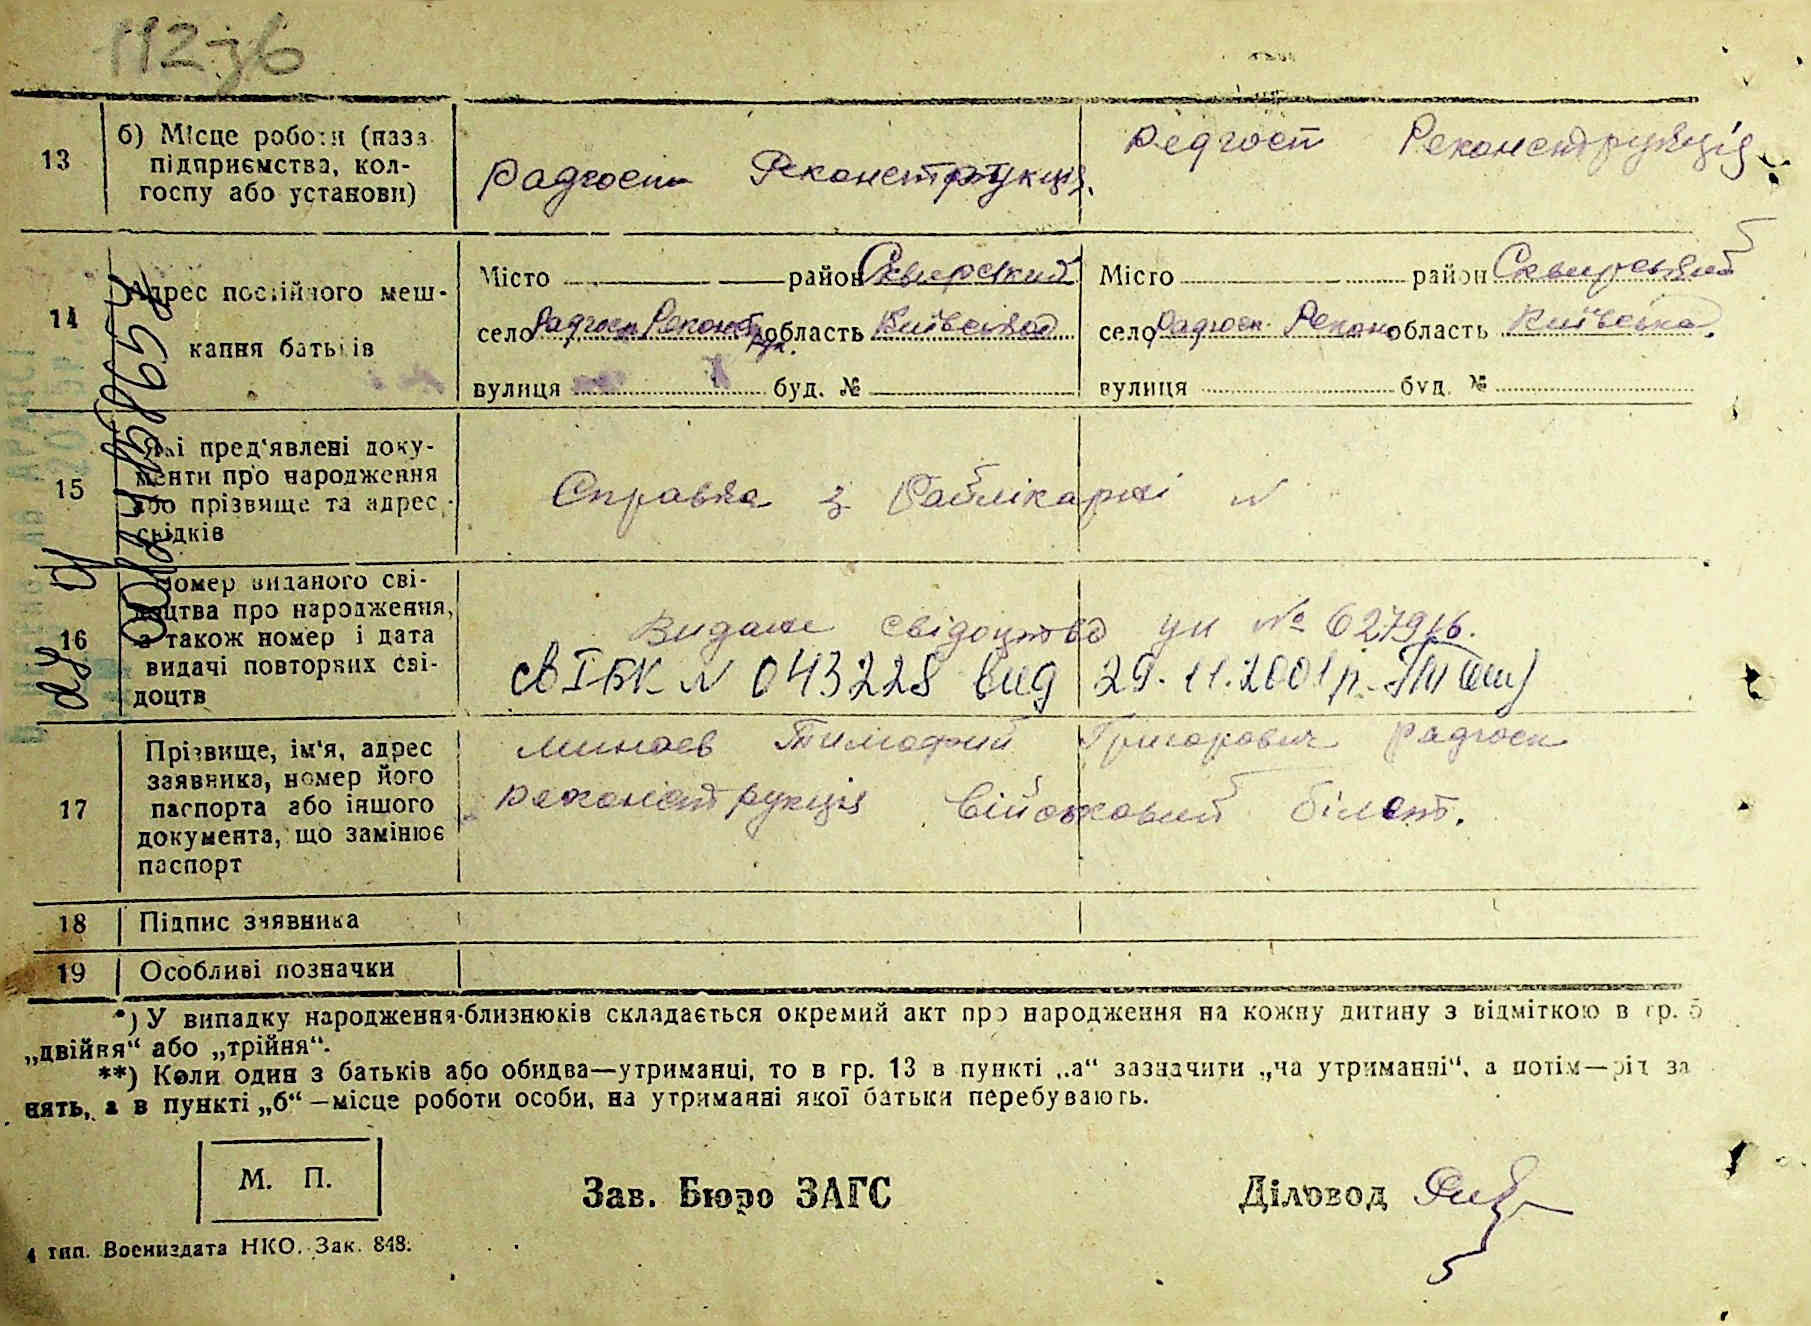 112 зв
13 б) Місце роботи (назв підприємства, колгоспу або установи)
Радгосп Реконструкція.
Редгосп Реконструкція
14 Адрес постійного мешкання батьків
Місто район Сквирский
село Радгосп Реконструк. область Київської
вулиця буд. №
Місто район Сквирський
село Радгосп. Рекон область Київська.
вулиця буд. №
15 Які пред‘явлені документи про народження або прізвище та адрес свідків
Справка з Райлікарні №
16 Номер виданого свідоцтва про народження, а також номер і дата видачі повторних свідоцтв
Видане свідоцтво уп № 627916.
св І БК № 043228 вид 29.11.2001р.
17 Прізвище, ім‘я, адрес заявника, номер його паспорта або іншого документа, що замінює паспорт
Минаев Тимофий Григорович радгосп
Реконструкція військовий білет.
18 Підпис заявника
19 Особливі позначки
*) У випадку народження-близнюків складається окремий акт про народження на кожну дитину з відміткою в гр. 5
„двійня“ або „трійня“.
**) Коли один з батьків або обидва—утриманці, то в гр. 13 в пункті „а“ зазначити „на утриманні“, а потім—рід за
нять, а в пункті „б“—місце роботи особи, на утриманні якої батьки перебувають.
М. П.
Зав. Бюро ЗАГС
Діловод
4 тип. Воениздата НКО. Зак. 848.